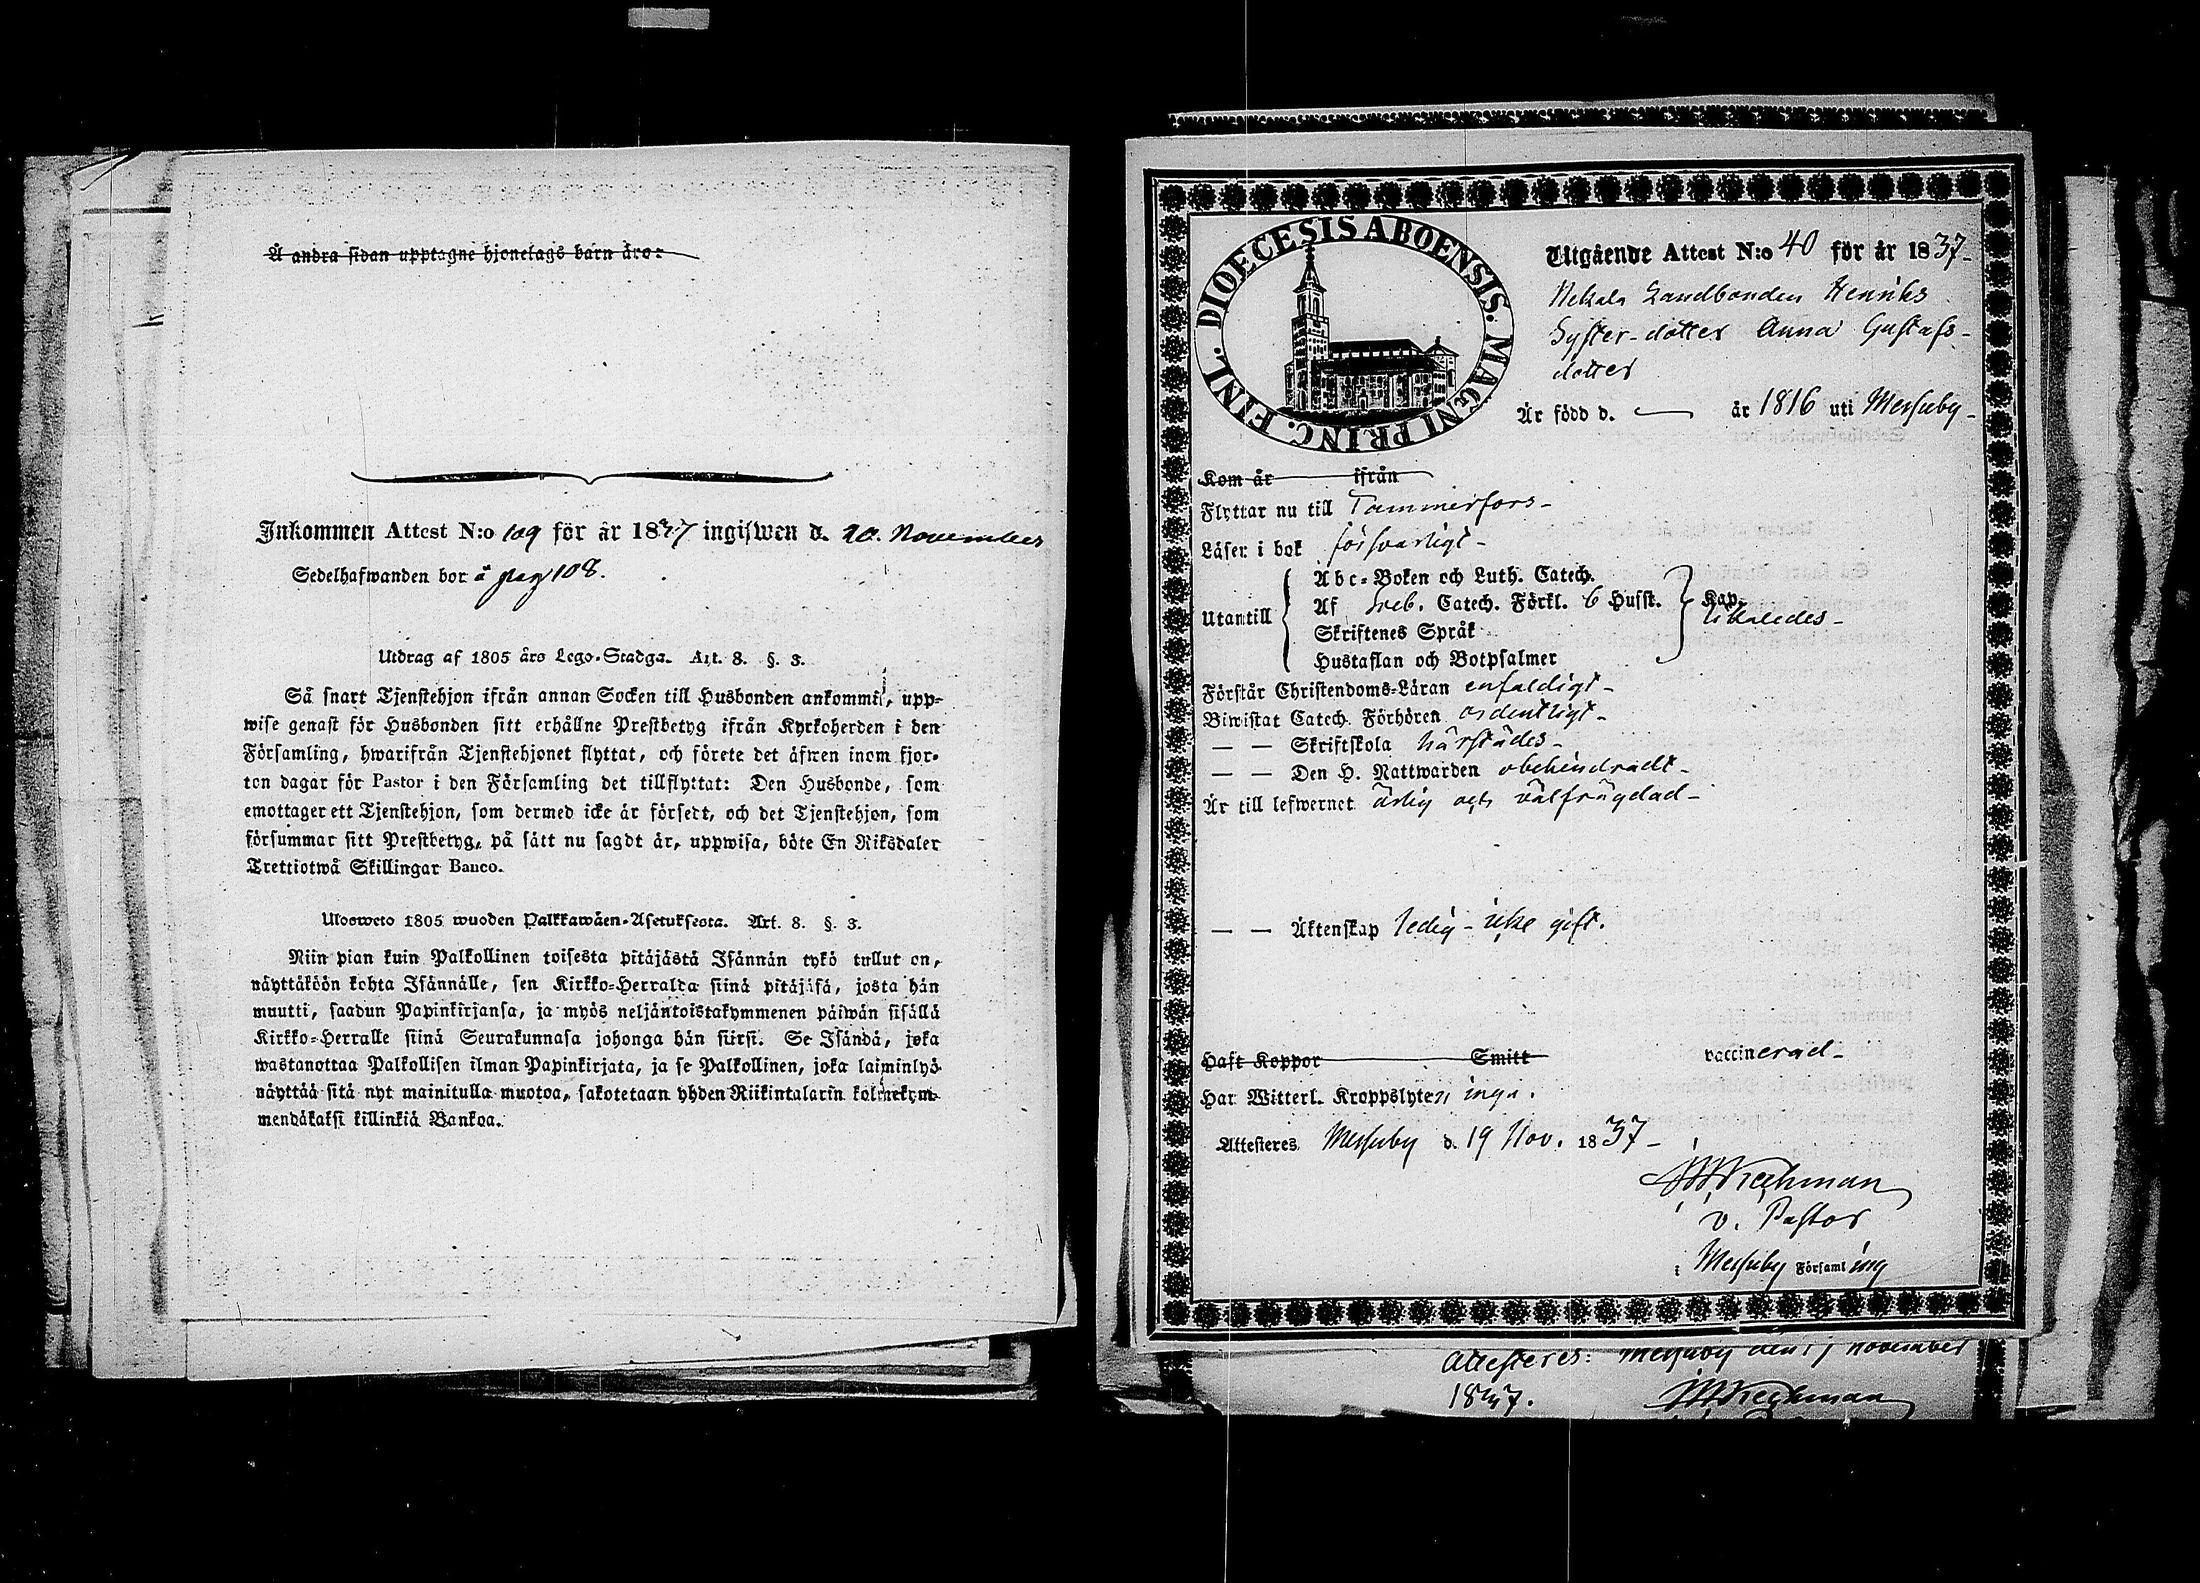 Å andra sidan upptagne hjonelags barn äro:
Inkommen Attest N:o 109 för år 1837 ingifwen d. 20. November
Sedelhafwanden bor å pag 108.
Utdrag af 1805 års Lego-Stadga. Art. 8. §. 3.
Så snart Tjenstehjon ifrån annan Socken till Husbonden ankommit, upp-
wise genast för Husbonden sitt erhållne Prestbetyg ifrån Kyrkoherden i den
Församling, hwarifrån Tjenstehjonet flyttat, och förete det äfwen inom fjor-
ton dagar för Pastor i den Församling det tillflyttat: Den Husbonde, som
emottager ett Tjenstehjon, som dermed icke är försedt, och det Tjenstehjon, som
försummar sitt Prestbetyg, på sätt nu sagdt är, uppwisa, böte En Riksdaler
Trettiotwå Skillingar Banco.
Ulosweto 1805 wuoden Palkkawäen-Asetuksesta. Art. 8. §. 3.
Niin pian kuin Palkollinen toisesta pitäjästä Isännän tykö tullut on,
näyttäköön kohta Isännälle, sen Kirkko-Herralta siinä pitäjäsä, josta hän
muutti, saadun Papinkirjansa, ja myös neljäntoistakymmenen päiwän sisällä
Kirkko-Herralle siinä Seurakunnasa johonga hän siirsi. Se Isändä, joka
wastanottaa Palkollisen ilman Papinkirjata, ja se Palkollinen, joka laiminlyö
näyttää sitä nyt mainitulla muotoa, sakotetaan yhden Riikintalarin kolmekym-
mendäkaksi killinkiä Bankoa.
DIOECESIS ABOENSIS. MAGNI PRINC. FINL.
Utgående Attest N:o 40 för år 1837-
Nekala Landbonden Henriks
Syster-dotter Anna Gustafs-
dotter
Är född d. — år 1816 uti Messuby-
Kom år ifrån
Flyttar nu till Tammerfors-
Läser i bok försvarligt-
Utantill
Abc-Boken och Luth. Catech.
Af Sveb. Catech. Förkl. 6 Hufst. Kap.
Skriftenes Språk
likaledes-
Hustaflan och Botpsalmer
Förstår Christendoms-Läran enfaldigt-
Biwistat Catech. Förhören ordentligt-
— — Skriftskola härstädes-
— — Den H. Nattwarden obehindradt-
Är till lefwernet ärlig och välfrägdad-
— — Äktenskap ledig - icke gift.
Haft Koppor Smitt vaccinerad-
Har Witterl. Kroppslyten inga.
Attesteres Messuby d. 19 Nov. 1837-
v. Pastor
i Messuby Församling
Attesteres: Messuby den November
1837.